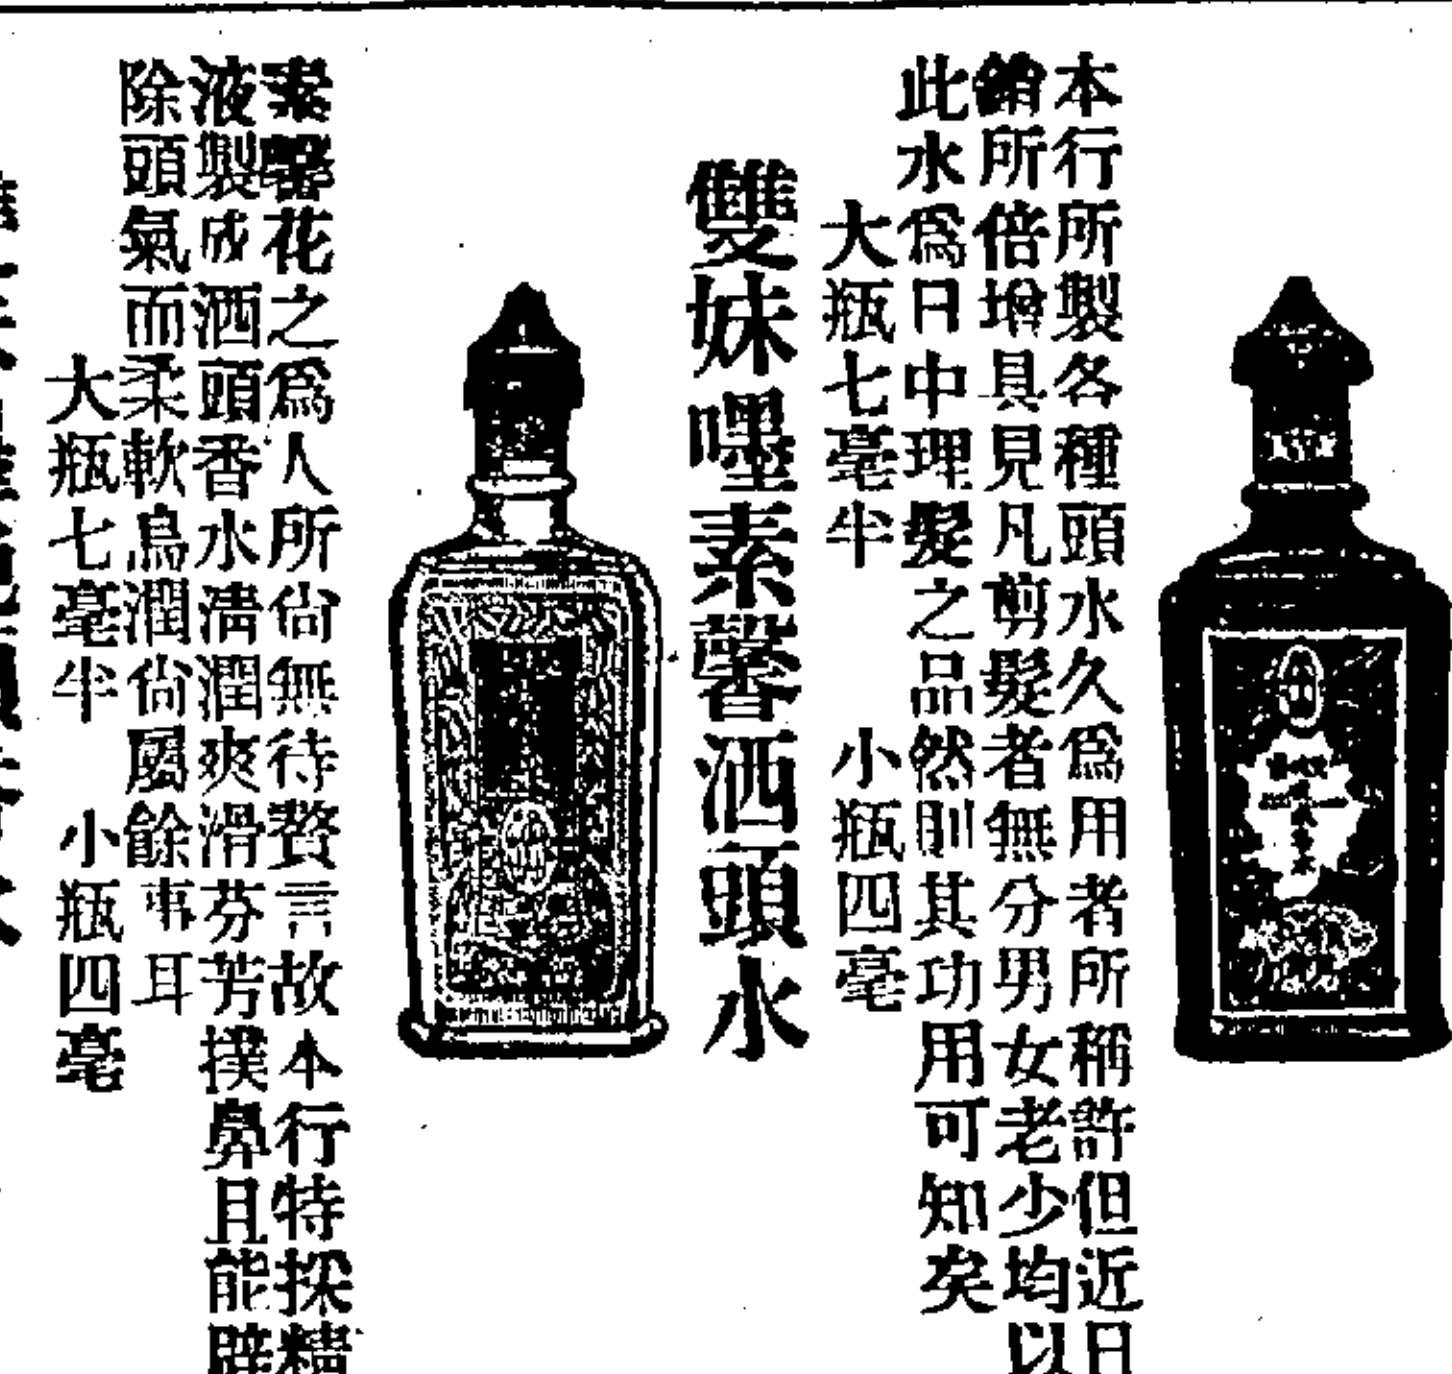 本行所製各種頭水久爲用者所稱許但近日
銷所倍增具見凡剪髮者無分男女老少均以
此水爲日中理髮之品然則其功用可知矣
大瓶七毫半　小瓶四毫
雙妹嚜素馨洒頭水
素馨花之爲人所尙無待贅言故本行特採精
液製成洒頭香水淸潤爽滑芬芳撲鼻且能辟
除頭氣而柔軟烏潤尙屬餘事耳
大瓶七毫半　小瓶四毫